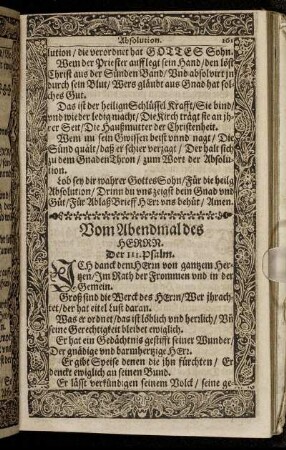 Absolution. 161
lution / die verordnet hat GOTTES Sohn.
Wem der Priester aufflegt sein Hand / den löst
Christ auff der Sünden Band / Vnd absolvirt jn
durch sein Blut / Wers gläubt aus Gnad hat sol-
ches Gut.
Das ist der heiligen Schlüssel Krafft / Sie bind /
vnd wieder ledig macht / Die Kirch trägt sie an jh-
rer Seit / Die Haußmutter der Christenheit.
Wem nu sein Gwissen beist vnnd nagt / Die
Sünd quält / daß er schier verzagt / Der halt sich
zu dem Gnaden Thron / zum Wort der Absolu-
tion.
Lob sey dir wahrer Gottes Sohn / Für die heilg
Absolution / Drinn du vns zeigst dein Gnad vnd
Güt / Für Ablaß Brieff HErr vns behüt / Amen.
Vom Abendmal des
HERRN.
Der 111. Psalm.
ICH danck dem HErrn von gantzem Her-
tzen / Im Rath der Frommen vnd in der
Gemein.
Groß sind die Werck des HErrn / Wer jhr ach-
tet / der hat eitel Lust daran.
Was er ordnet / das ist löblich vnd herrlich / Vñ
seine Gerechtigkeit bleibet ewiglich.
Er hat ein Gedächtnis gestifft seiner Wunder /
Der gnädige vnd barmhertzige HErr.
Er gibt Speise denen die ihn fürchten / Er
denckt ewiglich an seinen Bund.
Er lässt verkündigen seinem Volck / seine ge-